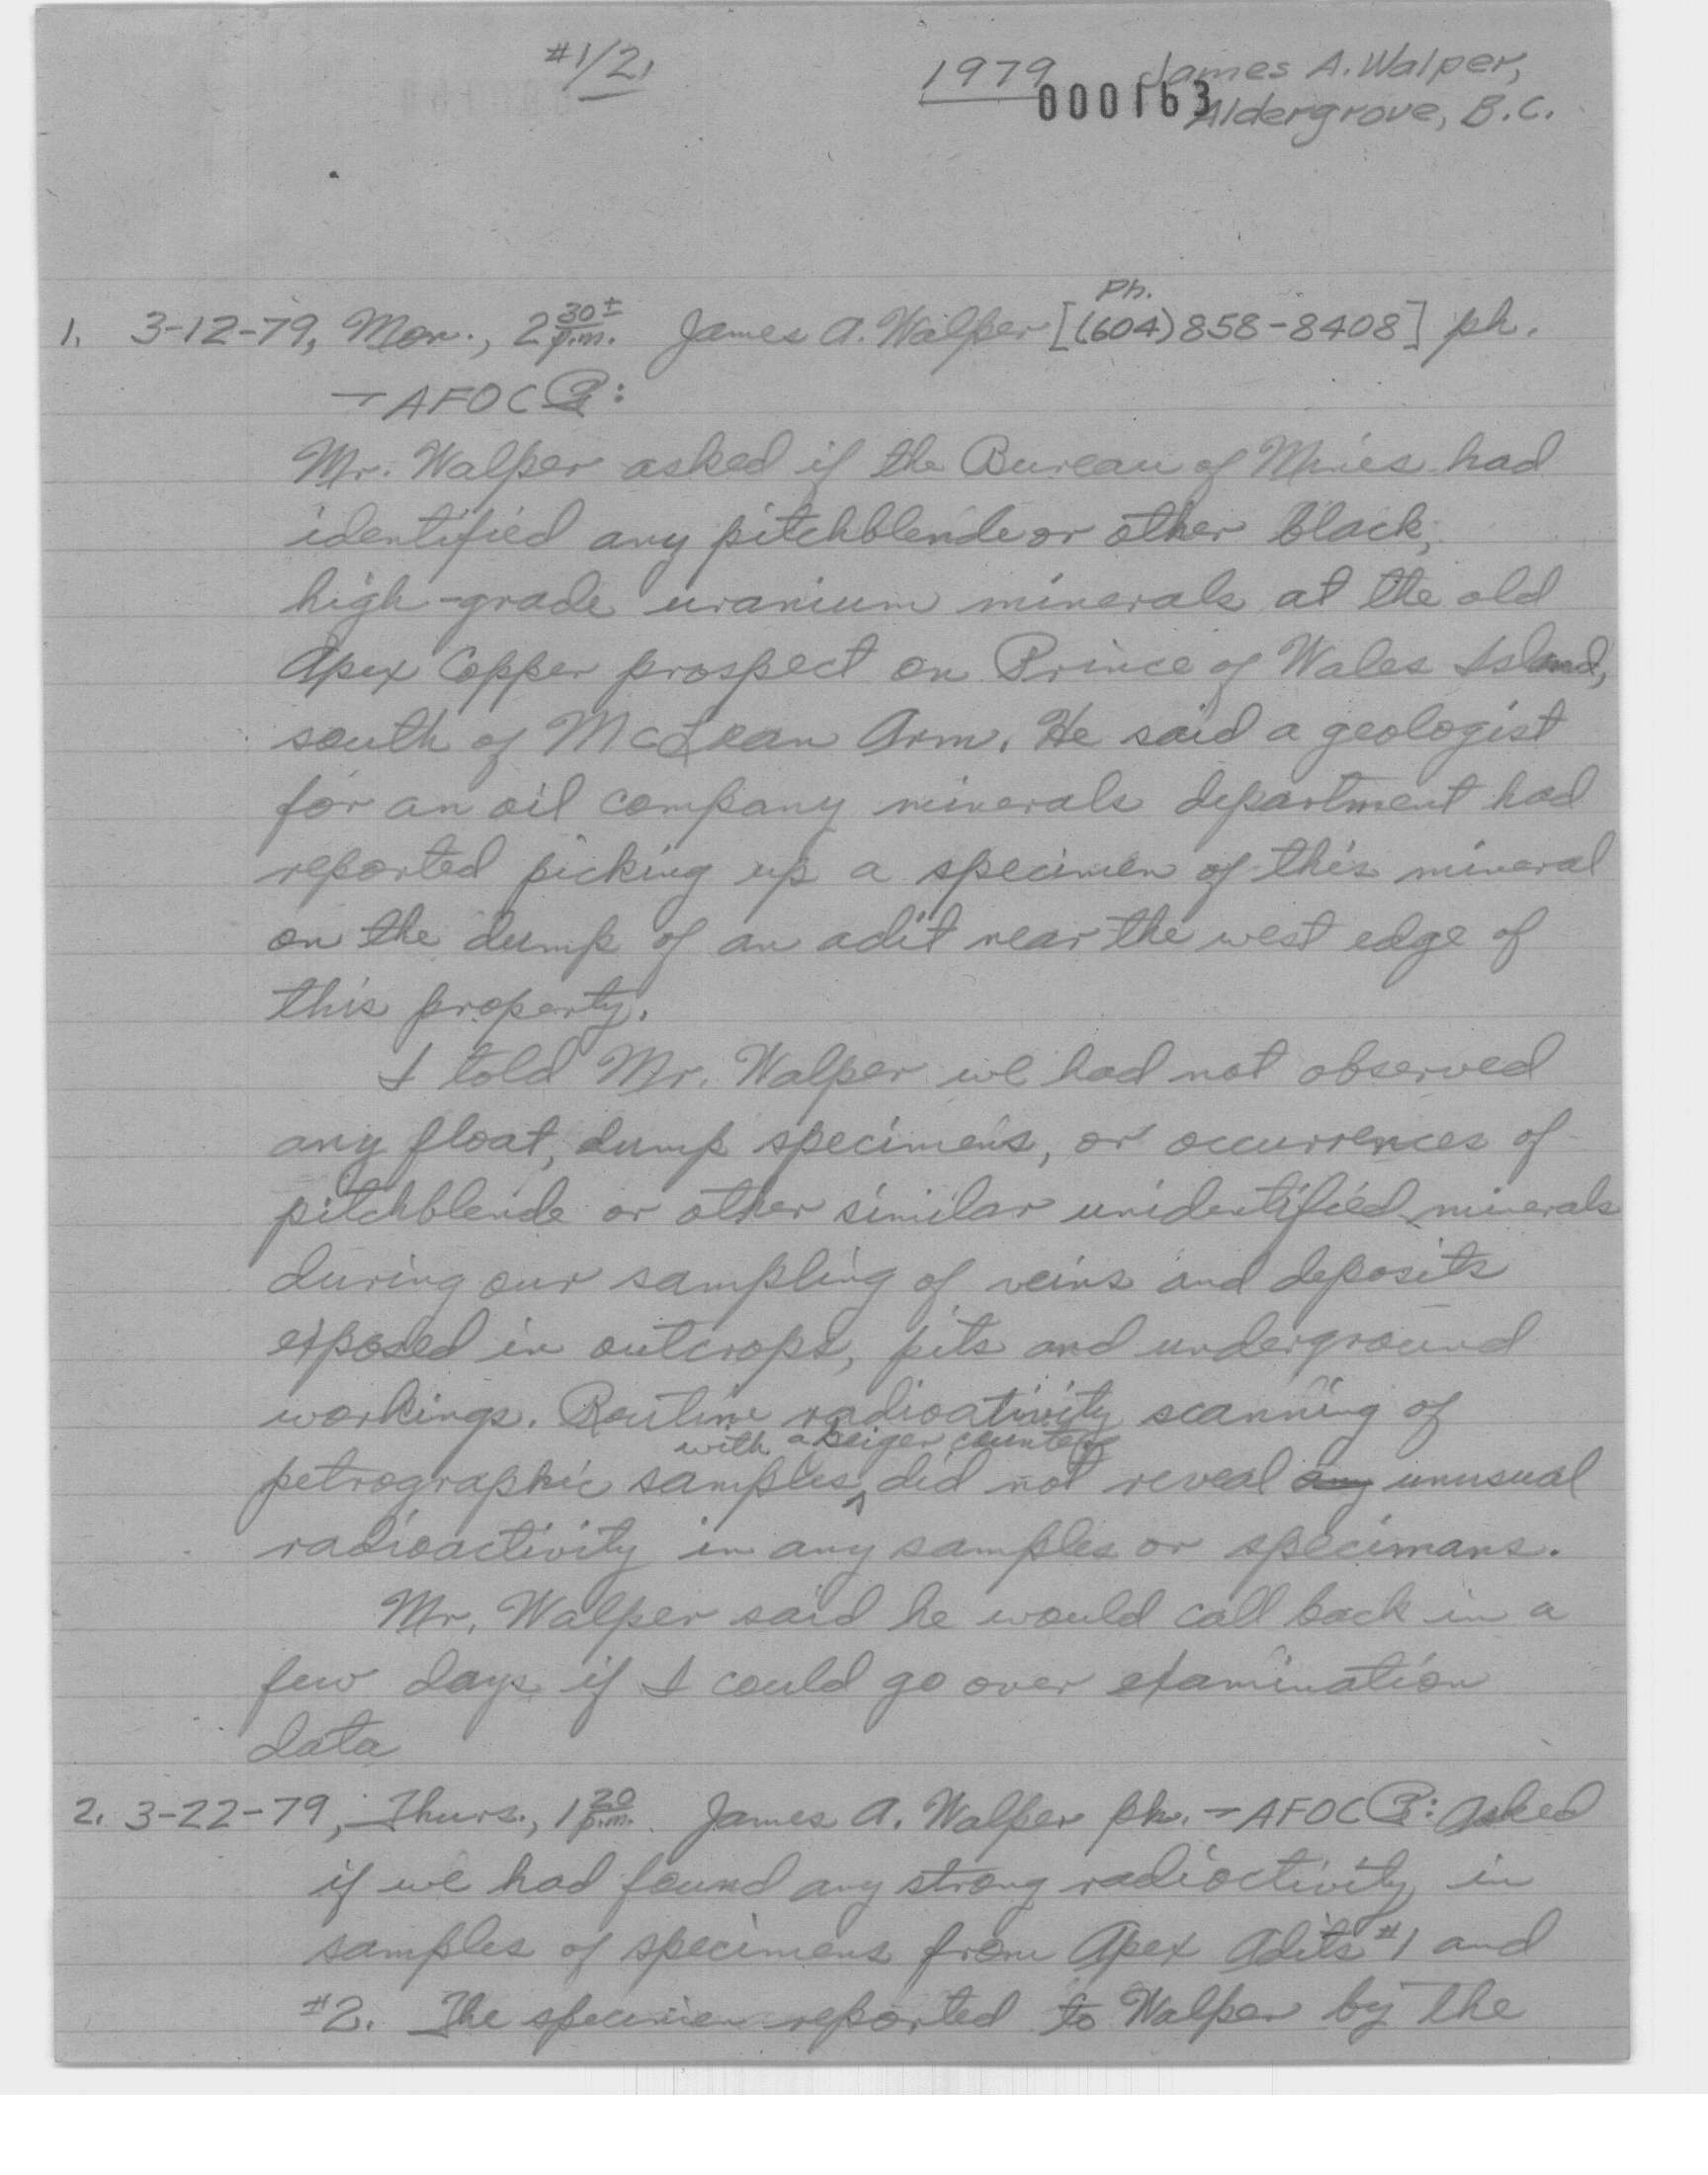 #1/2,
1979 James A. Walper,
000163 Aldergrove, B.C.
Ph.
1. 3-12-79, Mon., 2 30± p.m. James A. Walper [(604) 858-8408] ph.
→ AFOC :
Mr. Walper asked if the Bureau of Mines had
identified any pitchblende or other black,
high-grade uranium minerals at the old
Apex Copper prospect on Prince of Wales Island,
south of McLean Arm. He said a geologist
for an oil company minerals department had
reported picking up a specimen of this mineral
on the dump of an adit near the west edge of
this property.
I told Mr. Walper we had not observed
any float, dump specimens, or occurrences of
pitchblende or other similar unidentified minerals
during our sampling of veins and deposits
exposed in outcrops, pits and underground
workings. Routine radioativity scanning of
with a Geiger counter
petrographic samples ^ did not reveal any unusual
radioactivity in any samples or specimans.
Mr. Walper said he would call back in a
few days if I could go over examination
data
2. 3-22-79, Thurs., 1 20 p.m. James A. Walper ph. → AFOC : Asked
if we had found any strong radioctivity in
samples of specimens from Apex Adits #1 and
#2. The specimen reported to Walper by the